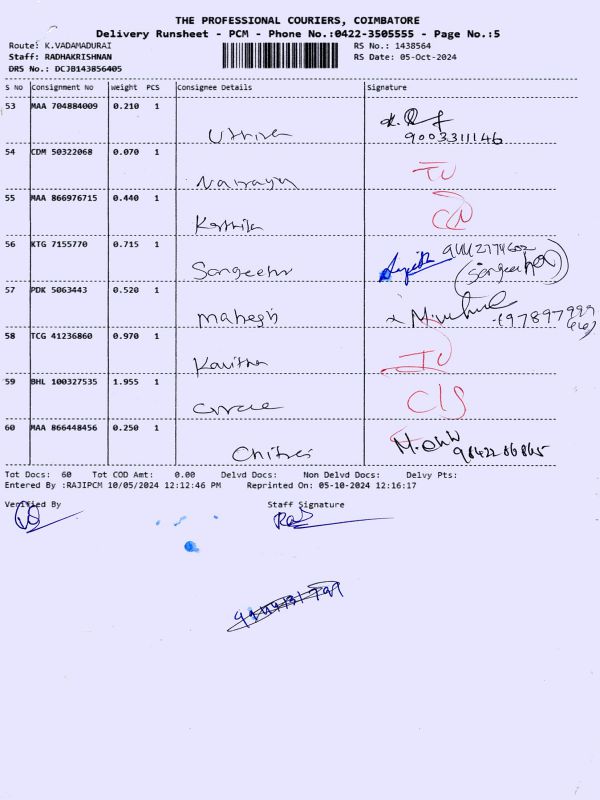 THE PROFESSIONAL COURIERS, COIMBATORE
Delivery Runsheet - PCM - Phone No.:0422-3505555 - Page No.:5
Route: K.VADAMADURAI RS No.: 1438564
Staff: RADHAKRISHNAN RS Date: 05-Oct-2024
DRS No.: DCJB143856405
S No Consignment No Weight PCS Consignee Details Signature
53 MAA 704884009 0.210 1
9003311146
54 CDM 50322068 0.070 1
Narayan
55 MAA 866976715 0.440 1
Karthik
56 KTG 7155770 0.715 1
Sangeetha (Sangeetha)
57 PDK 5063443 0.520 1
Mahesh
58 TCG 41236860 0.970 1
Kavitha
59 BHL 100327535 1.955 1
C/S
60 MAA 866448456 0.250 1
Chitra
Tot Docs: 60 Tot COD Amt: 0.00 Delvd Docs: Non Delvd Docs: Delvy Pts:
Entered By :RAJIPCM 10/05/2024 12:12:46 PM Reprinted On: 05-10-2024 12:16:17
Verified By Staff Signature